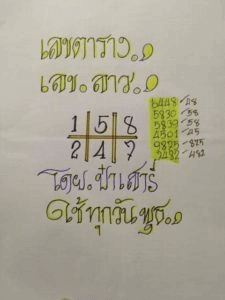 เลขตาราง
เลข.ลาว.
5448-48
5830-58
5839-58
4501-45
9825-825
2482-482
1 5 8
2 4 7
โดย.ป๋าเสารี่
ใช้ทุกวันพุธ.